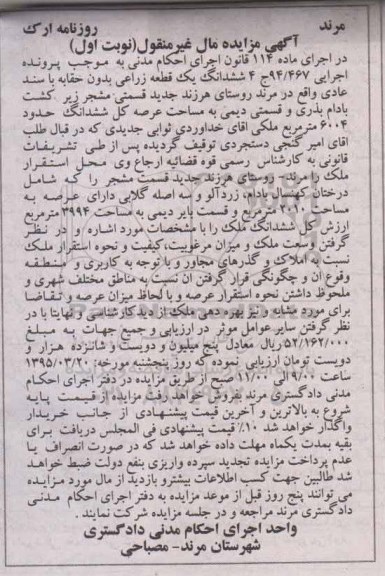 مرند روزنامه ارک
آگهی مزایده مال غیرمنقول(نوبت اول)
در اجرای ماده ۱۱۴ قانون اجرای احکام مدنی به موجب پرونده
اجرایی ۹۴/۴۶۷ج ۴ ششدانگ یک قطعه زراعی بدون حقابه با سند
عادی واقع در مرند روستای هرزند جدید قسمتی مشجر زیر کشت
بادام بذری و قسمتی دیمی به مساحت عرصه کل ششدانگ حدود
۶۰۰۴ مترمربع ملکی اقای خداوردی ثوابی جدیدی که در قبال طلب
اقای امیر گنجی دستجردی توقیف گردیده پس از طی تشریفات
قانونی به کارشناس رسمی قوه قضائیه ارجاع وی محل استقرار
ملک را مرند- روستای هرزند جدید قسمت مشجر را که شامل
درختان کهنسال بادام، زردآلو و سه اصله گلابی دارای عرصه به
مساحت مترمربع و قسمت بایر دیمی به مساحت ۳۹۹۴ مترمربع
ارزش کل ششدانگ ملک را با مشخصات مورد اشاره و در نظر
گرفتن وسعت ملک و میزان مرغوبیت، کیفیت و نحوه استقرار ملک
نسبت به املاک و گذرهای مجاور و با توجه به کاربری و منطقه
وقوع آن و چگونگی قرار گرفتن آن نسبت به مناطق مختلف شهری و
ملحوظ داشتن نحوه استقرار عرصه و با لحاظ میزان عرضه و تقاضا
برای مورد مشابه و نیز بهره دهی ملک از دید کارشناسی و نهایتا با در
نظر گرفتن سایر عوامل موثر در ارزیابی و جمیع جهات به مبلغ
۵۲/۱۶۲/۰۰۰ ریال معادل پنج میلیون و دویست و شانزده هزار و
دویست تومان ارزیابی نموده که روز پنجشنبه مورخه: ۱۳۹۵/۰۳/۲۰
ساعت ۹/۰۰ الی ۱۱/۰۰ صبح از طریق مزایده در دفتر اجرای احکام
مدنی دادگستری مرند بفروش خواهد رسید مزایده از قیمت پایه
شروع به بالاترین و آخرین قیمت پیشنهادی از جانب خریدار
واگذار خواهد شد ۱۰٪ قیمت پیشنهادی فی المجلس دریافت برای
بقیه بمدت یکماه مهلت داده خواهد شد که در صورت انصراف یا
عدم پرداخت مزایده تجدید سپرده واریزی بنفع دولت ضبط خواهد
شد طالبین جهت کسب اطلاعات بیشتر و بازدید از مال مورد مزایده
می توانند پنج روز قبل از موعد مزایده به دفتر اجرای احکام مدنی
دادگستری مرند مراجعه و در جلسه مزایده شرکت نمایند .
واحد اجرای احکام مدنی دادگستری
شهرستان مرند- مصباحی